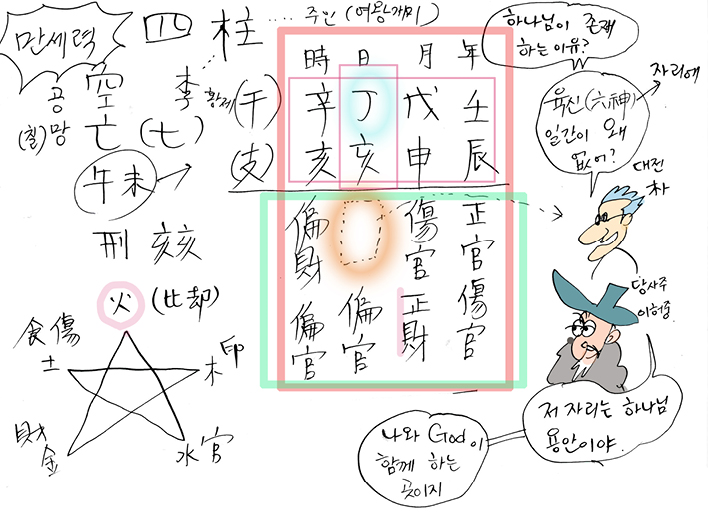 만세력
四柱.... 주인 (여왕개미)
공 空 李 황제 (干)
(칠)망 亡 (七) (支)
午未
刑 亥亥
火 (比却)
食傷
土
木印
財
金
水官
時 日 月 年
辛 丁 戊 壬
亥 亥 申 辰
偏財 傷官 正官
偏官 偏官 正財 傷官
하나님이 존재
하는 이유?
육신(六神)
일간이 왜
없어?
자리에
대전
차
당사주
이허중
저 자리는 하나님
용안이야.
나와 God이
함께 하는
곳이지